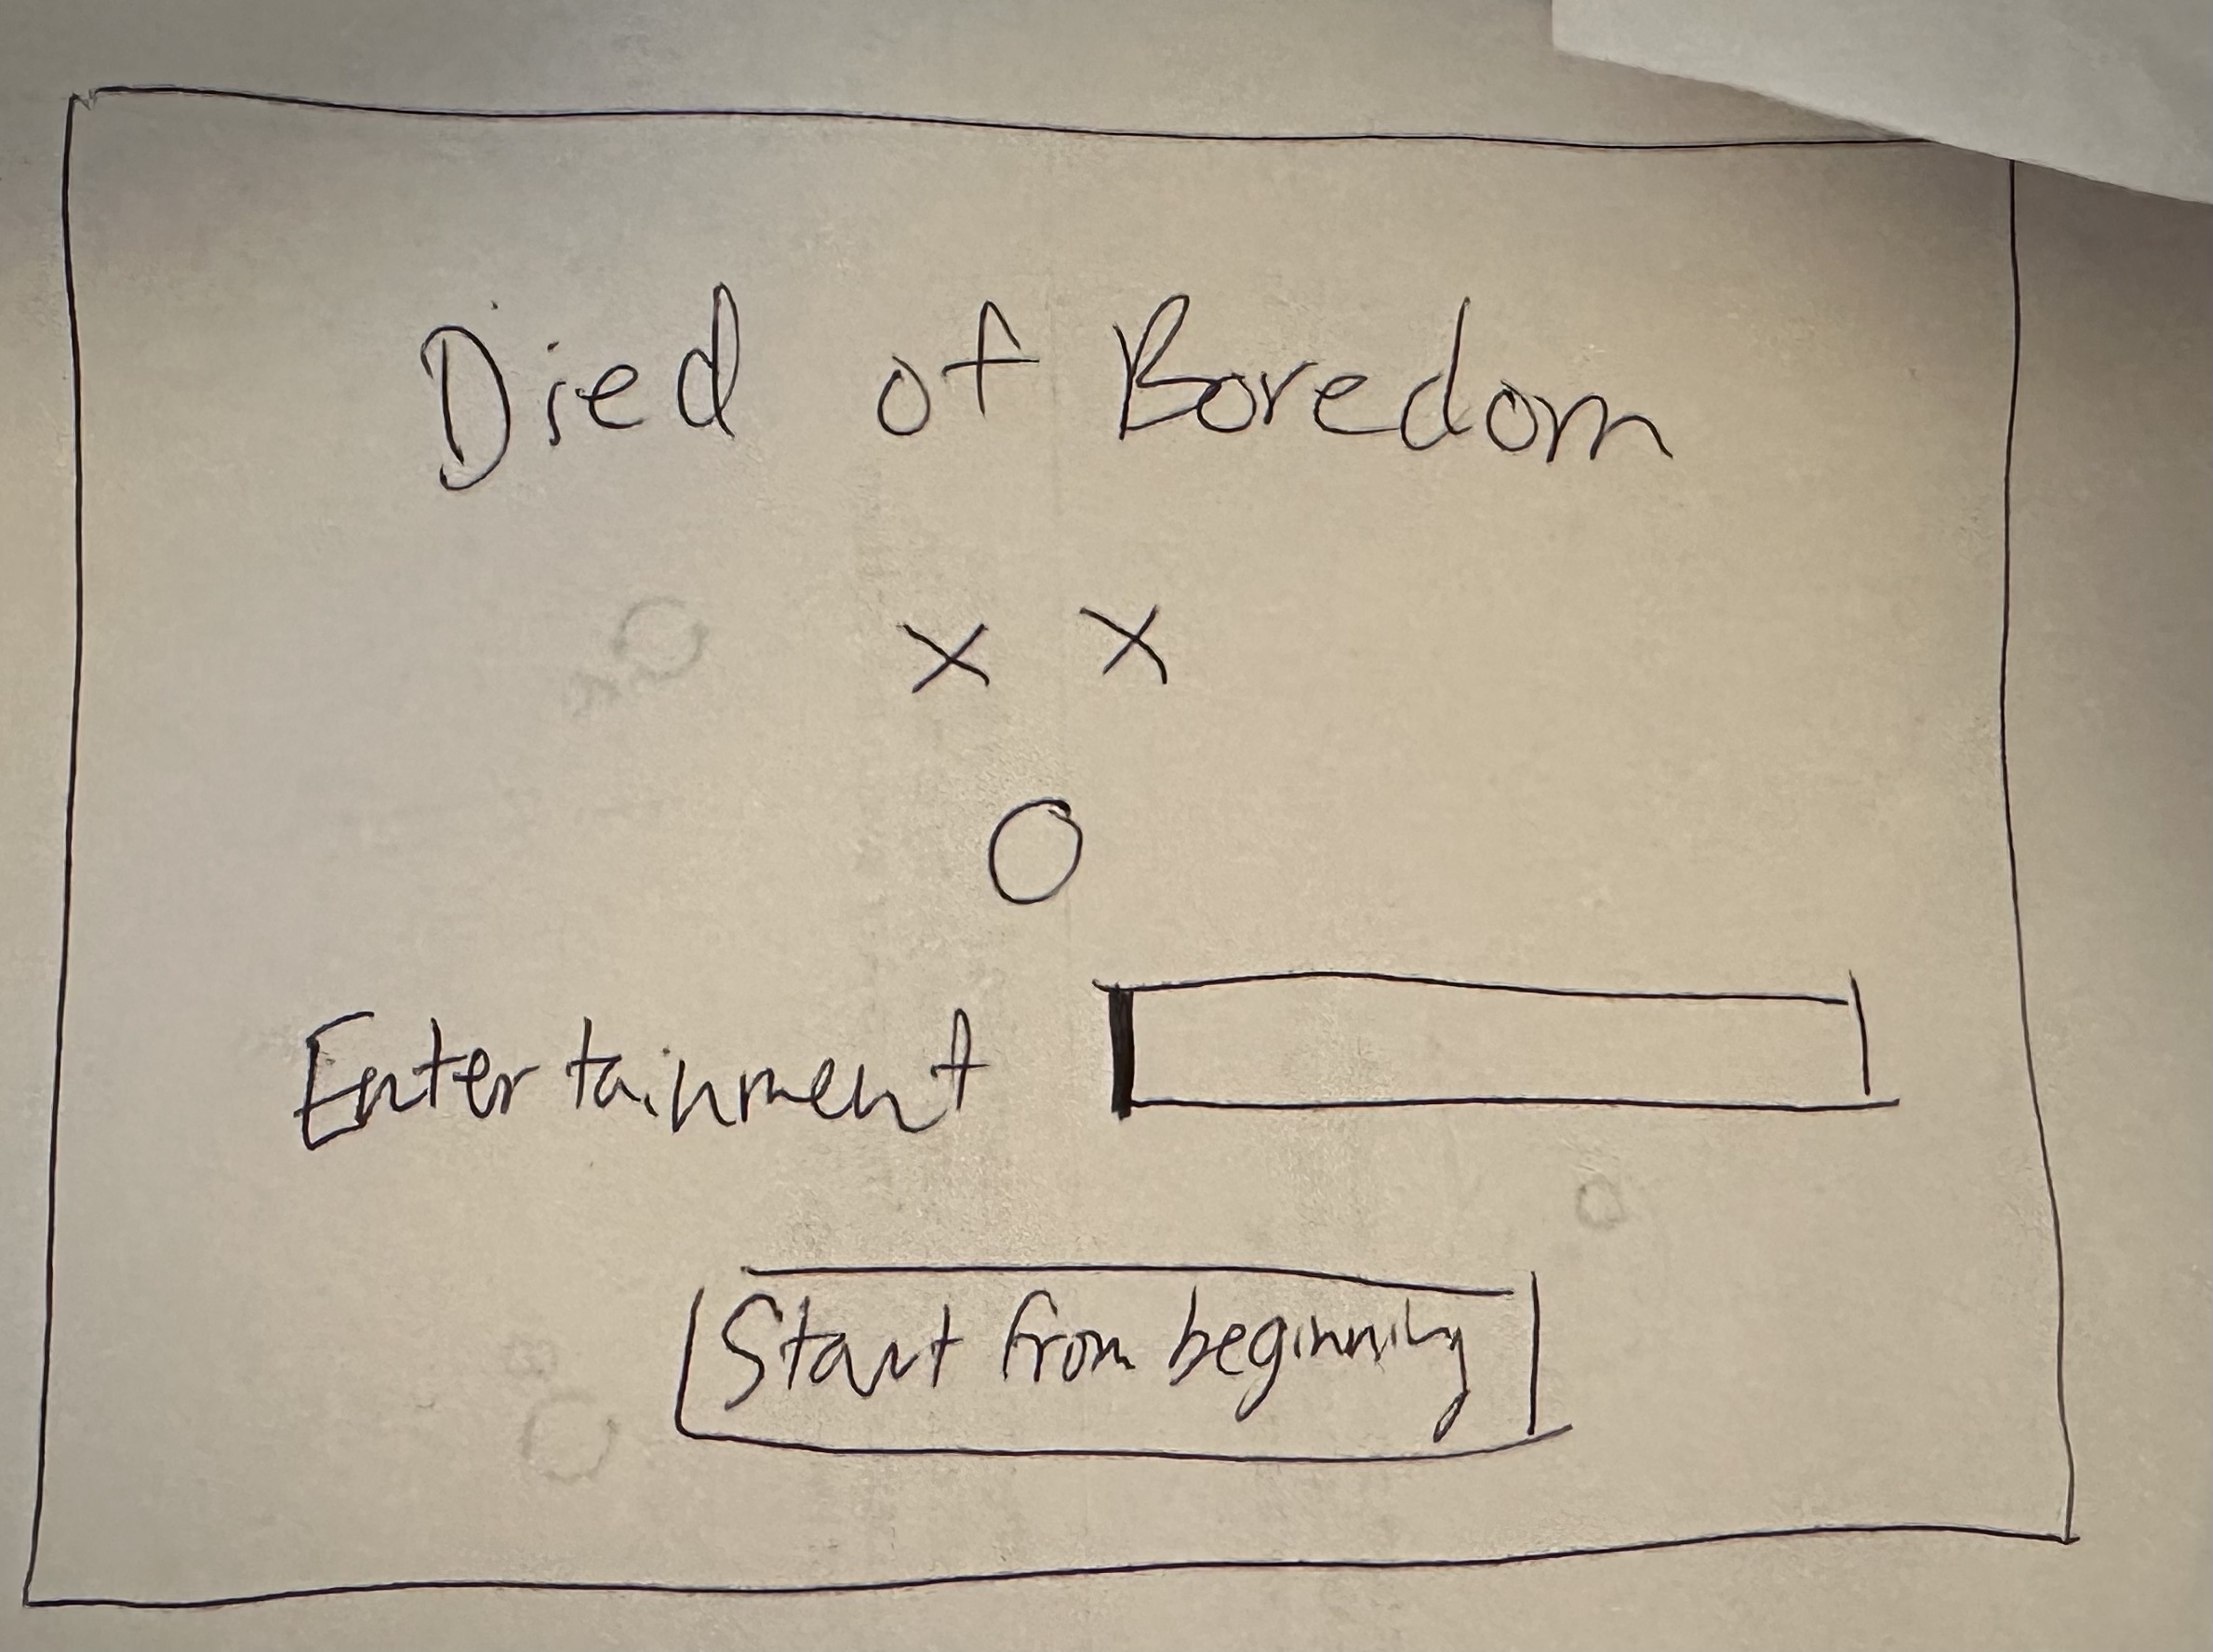 Died of Boredom
x x
O
Entertainment
Start from beginning